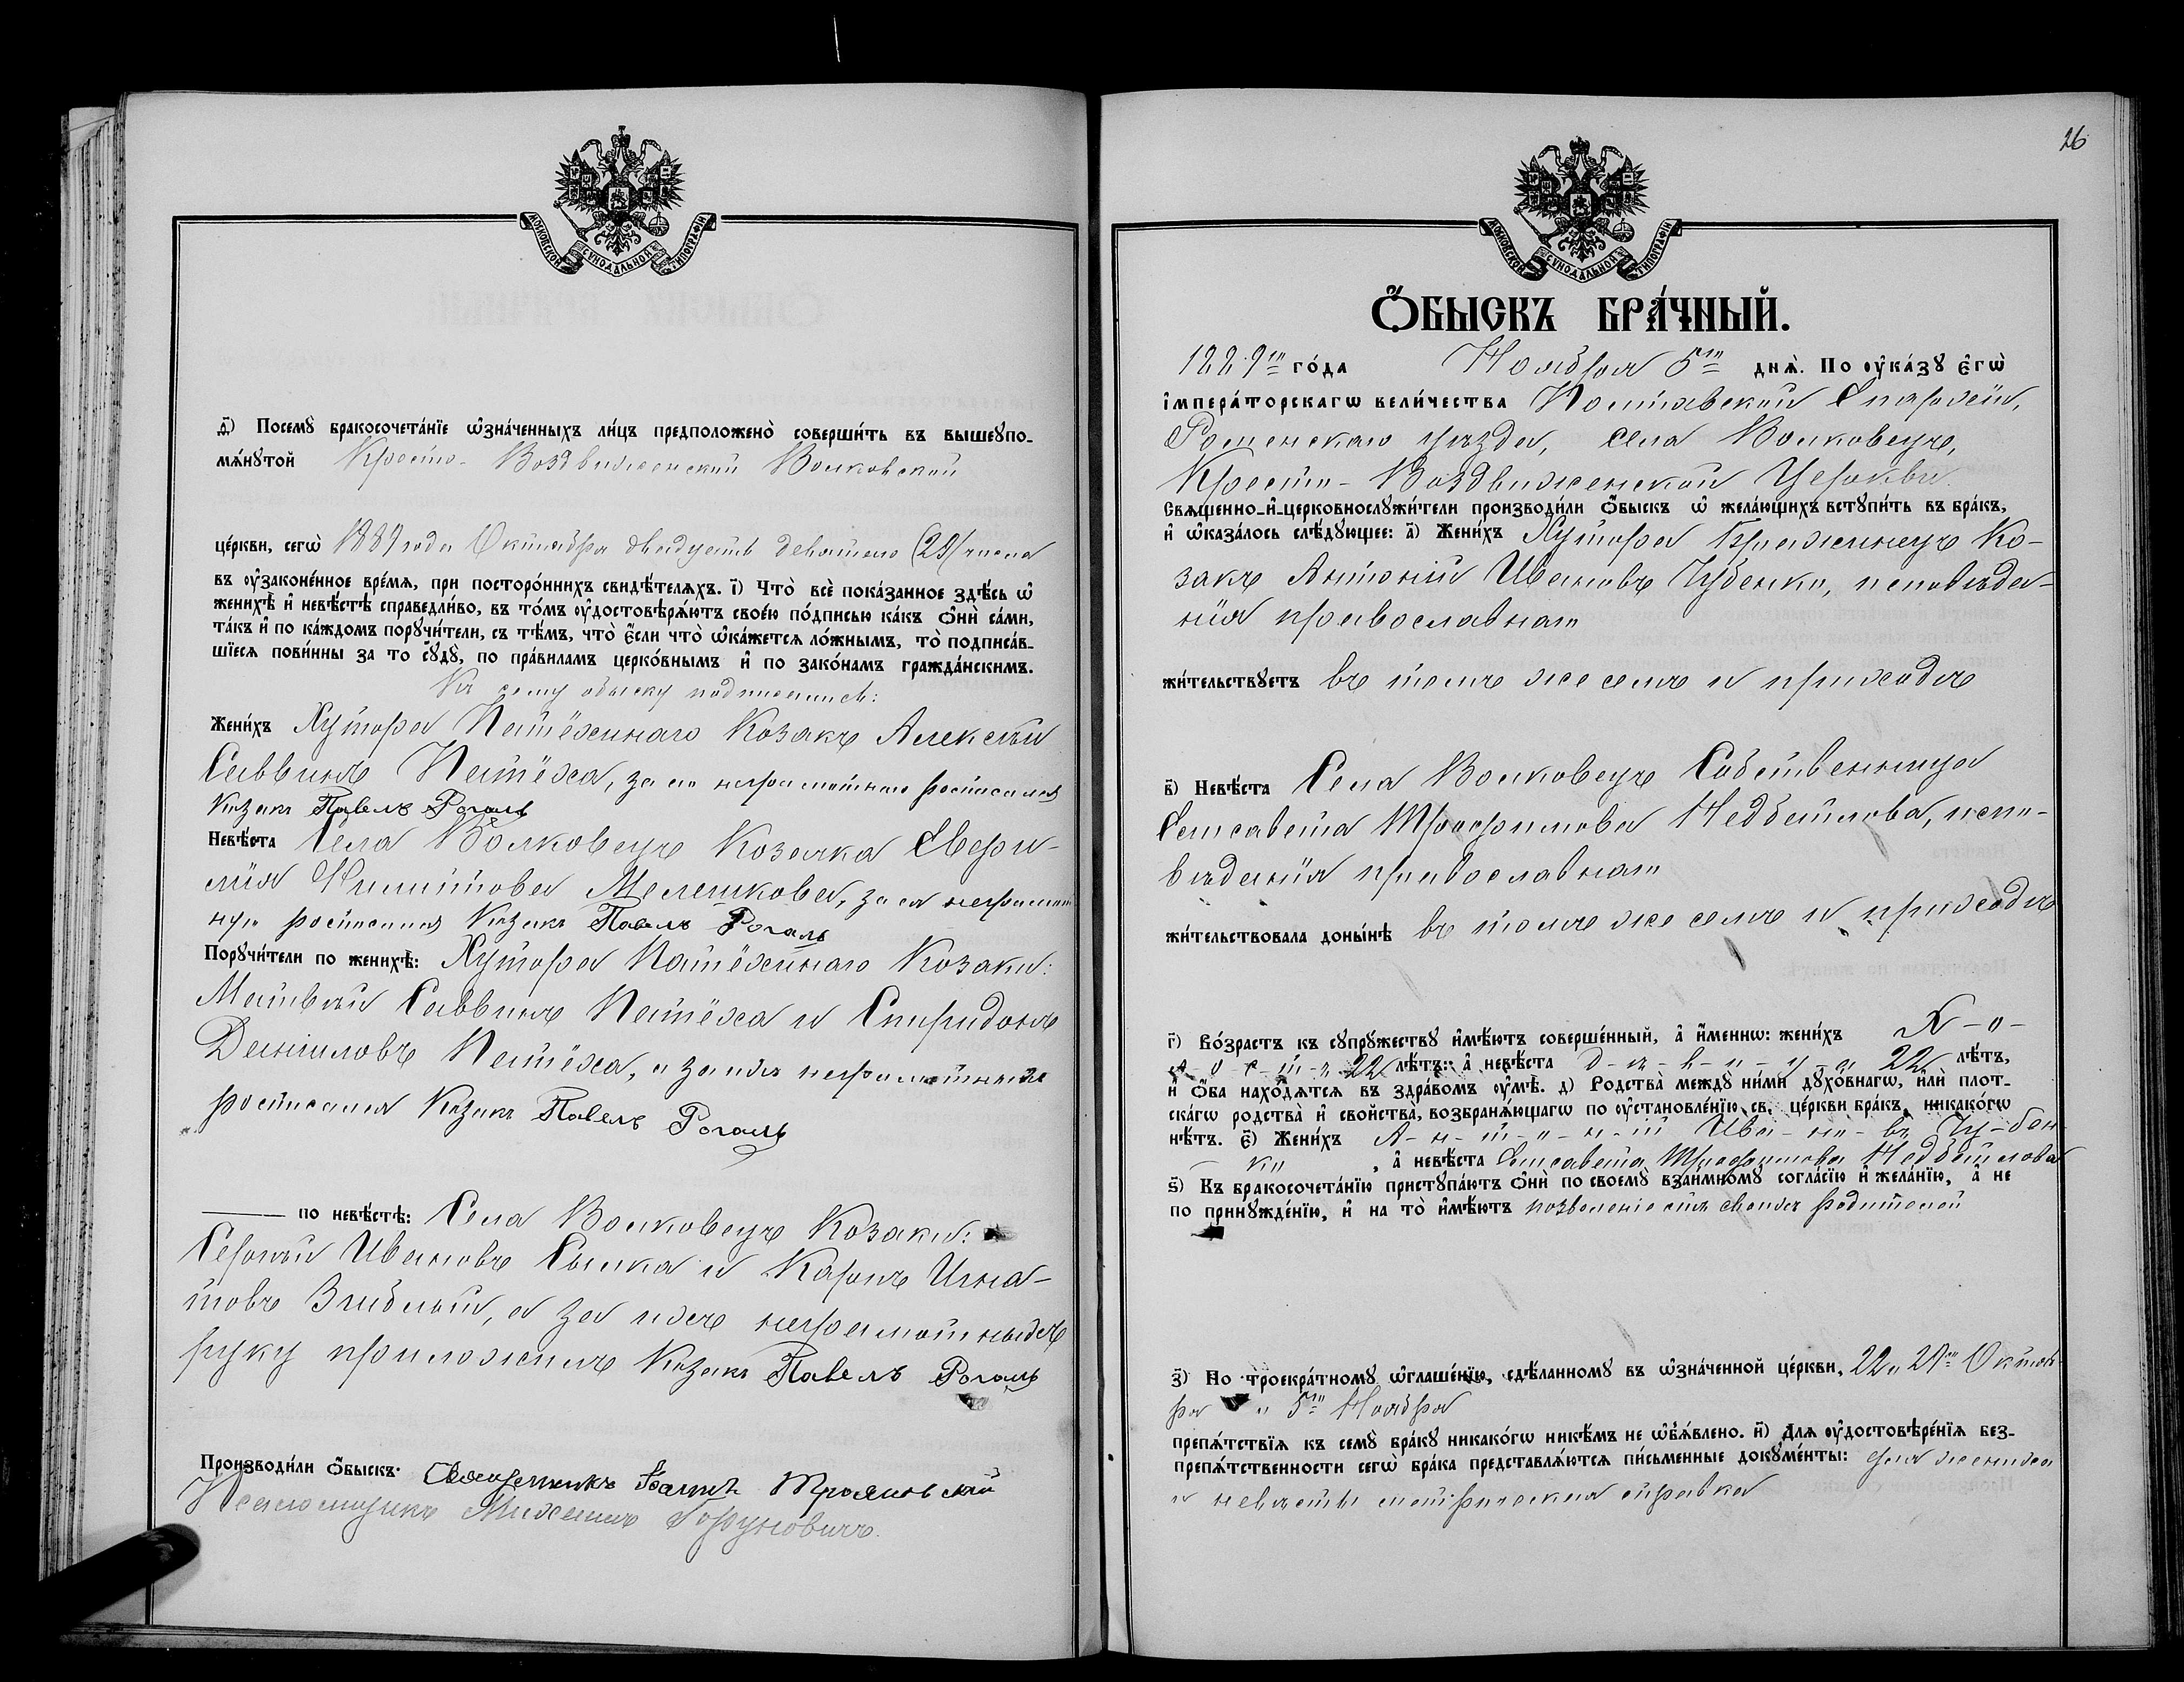 МОСКОВСКОЙ СѴНОДАЛЬНОЙ ТИПОГРАФІИ
д҃і) Посемꙋ̀ бракосочета́нїе ѡ҆зна́ченныхъ ли́цъ предположено̀ соверши́ть въ вышеꙋпо-
мѧ́нꙋтой Кресто-Воздвиженской Волковской
це́ркви, сегѡ̀ 1889 года Октября двадцать девятаго (29) числа
въ ᲂу҆законе́нное вре́мѧ, при посторо́ннихъ свидѣ́телѧхъ. і҃) Что̀ всѐ пока́занное здѣ́сь ѡ҆
женихѣ̀ и҆ невѣ́стѣ справедли́во, въ то́мъ ᲂу҆достовѣрѧ́ютъ свое́ю по́дписью ка́къ ѻ҆нѝ са́ми,
та́къ и҆ по ка́ждомъ порꙋчи́тели, съ тѣ́мъ, что̀ є҆́сли что̀ ѡ҆ка́жетсѧ ло́жнымъ, то̀ подписа́в-
шїесѧ пови́нны за то сꙋдꙋ̀, по пра́виламъ церко́внымъ и҆ по зако́намъ гражда́нскимъ.
Къ сему обыску подписались:
Жени́хъ Хутора Патёхинаго Козакъ Алексѣй
Саввинъ Патёха, за его неграмотнаго росписался
Козакъ Павелъ Рогаль
Невѣ́ста Села Волковецъ Козачка Евфи-
мія Филиппова Мелешкова, за ея неграмот
ную росписался Козакъ Павелъ Рогаль
Порꙋчи́тели по женихѣ̀: Хутора Патёхинаго Козаки:
Матвѣй Саввинъ Патёха и Спиридонъ
Даниловъ Патёха, а за ихъ неграмотныхъ
росписался Козакъ Павелъ Рогаль
по невѣ́стѣ: Села Волковецъ Козаки:
Сергѣй Ивановъ Сылка и Карпъ Игна-
товъ, а за ихъ неграмотныхъ
руку приложилъ Козакъ Павелъ Рогаль
Производи́ли ѻ҆́быскъ: Священникъ Трояновскій
Псаломщикъ Михаилъ
26
МОСКОВСКОЙ СѴНОДАЛЬНОЙ ТИПОГРАФІИ
Ѻ҆́БЫСКЪ БРА́ЧНЫЙ.
1889го го́да Ноября 5го днѧ̀. По ᲂу҆ка́зꙋ є҆гѡ̀
і҆мпера́торскагѡ вели́чества Полтавской Епархіи,
Роменскаго уѣзда, села Волковецъ,
Кресто-Воздвиженской Церкви
Свѧщенно-и҆-церковнослꙋжи́тели производи́ли ѻ҆́быскъ ѡ҆ жела́ющихъ встꙋпи́ть въ бра́къ,
и҆ ѡ҆каза́лось слѣ́дꙋющее: а҃) Жени́хъ Хутора Ко-
закъ Антоній Ивановъ Чубенко, исповѣда-
нія православнаго
жи́тельствꙋетъ въ томъ же селѣ и приходѣ
в҃) Невѣ́ста Села Волковецъ Собственница
Елисавета Трофимова Недбайлова, испо-
вѣданія православнаго
жи́тельствовала доны́нѣ въ томъ же селѣ и приходѣ
г҃) Во́зрастъ къ сꙋпрꙋ́жествꙋ и҆мѣ́ютъ соверше́нный, а҆ и҆́меннѡ: жени́хъ Х-о-
л-о-с-т-ъ 22 лѣ́тъ: а҆ невѣ́ста д-ѣ-в-и-ц-а 22 лѣ́тъ,
и҆ ѻ҆́ба нахо́дѧтсѧ въ здра́вомъ ᲂу҆мѣ̀. д҃) Родства̀ междꙋ̀ ни́ми дꙋхо́внагѡ, и҆лѝ плот-
ска́гѡ родства̀ и҆ свойства̀, возбранѧ́ющагѡ по ᲂу҆становле́нїю св. це́ркви бра́къ, никако́гѡ
нѣ́тъ. є҃) Жени́хъ А-н-т-о-н-ій Ива-но-въ Чу-бен-
ко, а҆ невѣ́ста Елисавета Трофимова Недбайлова
ѕ҃) Къ бракосочета́нїю пристꙋпа́ютъ ѻ҆нѝ по своемꙋ̀ взаи́мномꙋ согла́сїю и҆ жела́нїю, а҆ не
по принꙋжде́нїю, и҆ на то̀ и҆мѣ́ютъ позволеніе отъ своихъ родителей
з҃) По троекра́тномꙋ ѡ҆глаше́нїю, сдѣ́ланномꙋ въ ѡ҆зна́ченной це́ркви, 22 и 29го Октяб-
ря и 5го Ноября
препѧ́тствїѧ къ семꙋ̀ бра́кꙋ никако́гѡ никѣ́мъ не ѡ҆б̾ѧ́влено. и҃) Длѧ ᲂу҆достовѣре́нїѧ без-
препѧ́тственности сегѡ̀ бра́ка представлѧ́ютсѧ пи́сьменные докꙋме́нты: для жениха
и невѣсты метрическая справка